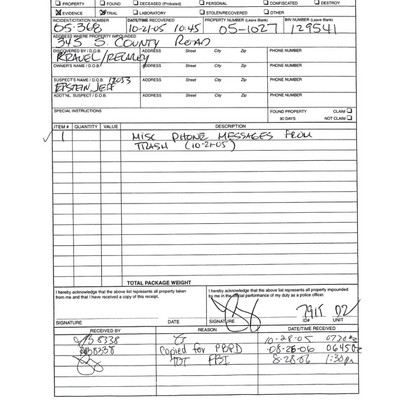 PROPERTY FOUND DECEASED (Probated) PERSONAL CONFISCATED DESTROY
EVIDENCE TRIAL LABORATORY STOLEN/RECOVERED OTHER
INCIDENT/CITATION NUMBER DATE/TIME RECOVERED PROPERTY NUMBER (Leave Blank) BIN NUMBER (Leave Blank)
05-368 10-21-05 10:45 05-1027 129541
ADDRESS WHERE PROPERTY IMPOUNDED
S. COUNTY ROAD
DISCOVERED BY / D.O.B. ADDRESS Street City Zip PHONE NUMBER
OWNER'S NAME / D.O.B. ADDRESS Street City Zip PHONE NUMBER
SUSPECT'S NAME / D.O.B. ADDRESS Street City Zip PHONE NUMBER
EPSTEIN, JEFF
ADDTNL. SUSPECT / D.O.B. ADDRESS Street City Zip PHONE NUMBER
SPECIAL INSTRUCTIONS FOUND PROPERTY CLAIM
90 DAYS NOT CLAIM
ITEM # QUANTITY VALUE DESCRIPTION
1 MISC PHONE MESSAGES FROM
TRASH (10-21-05)
TOTAL PACKAGE WEIGHT
I hereby acknowledge that the above list represents all property taken from me and that I have received a copy of this receipt.
I hereby acknowledge that the above list represents all property impounded by me in the official performance of my duty as a police officer.
02
SIGNATURE DATE SIGNATURE ID# UNIT
RECEIVED BY REASON DATE/TIME RECEIVED
8338 10-28-05
8338 Copied for PBPD 08-28-06
TOT FBI 8-28-06 1:30